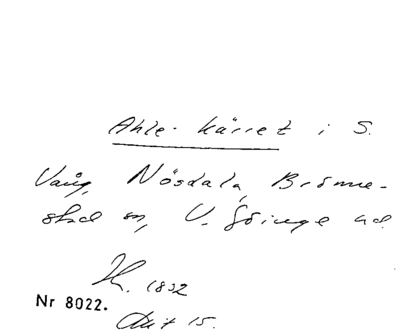 Ahle-kärret i S.
Vång, Nösdala, Brönne-
stad sn, V. Göinge hd.
H. 1832
Nr 8022.
Akt 15.